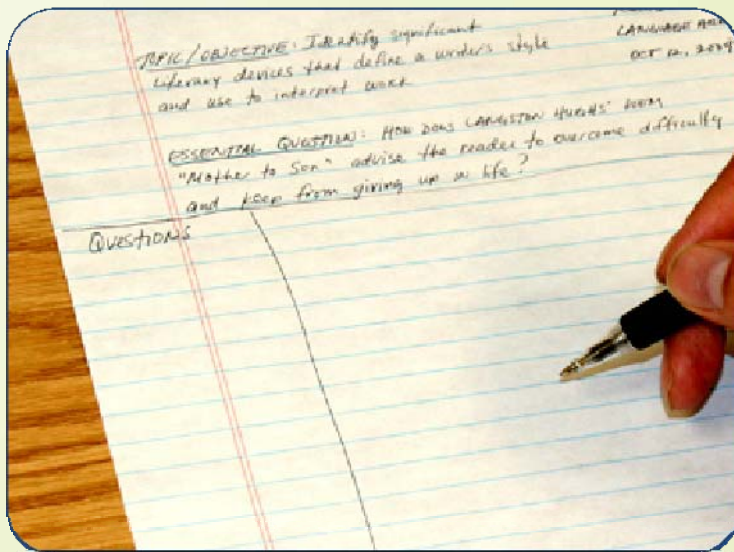 LANGUAGE
OCT 12, 2009
TOPIC/OBJECTIVE: Identify significant
literary devices that define a writer's style
and use to interpret work
ESSENTIAL QUESTION: HOW DOES LANGSTON HUGHS' POEM
"Mother to Son" advise the reader to overcome difficulty
and keep from giving up in life?
QUESTIONS